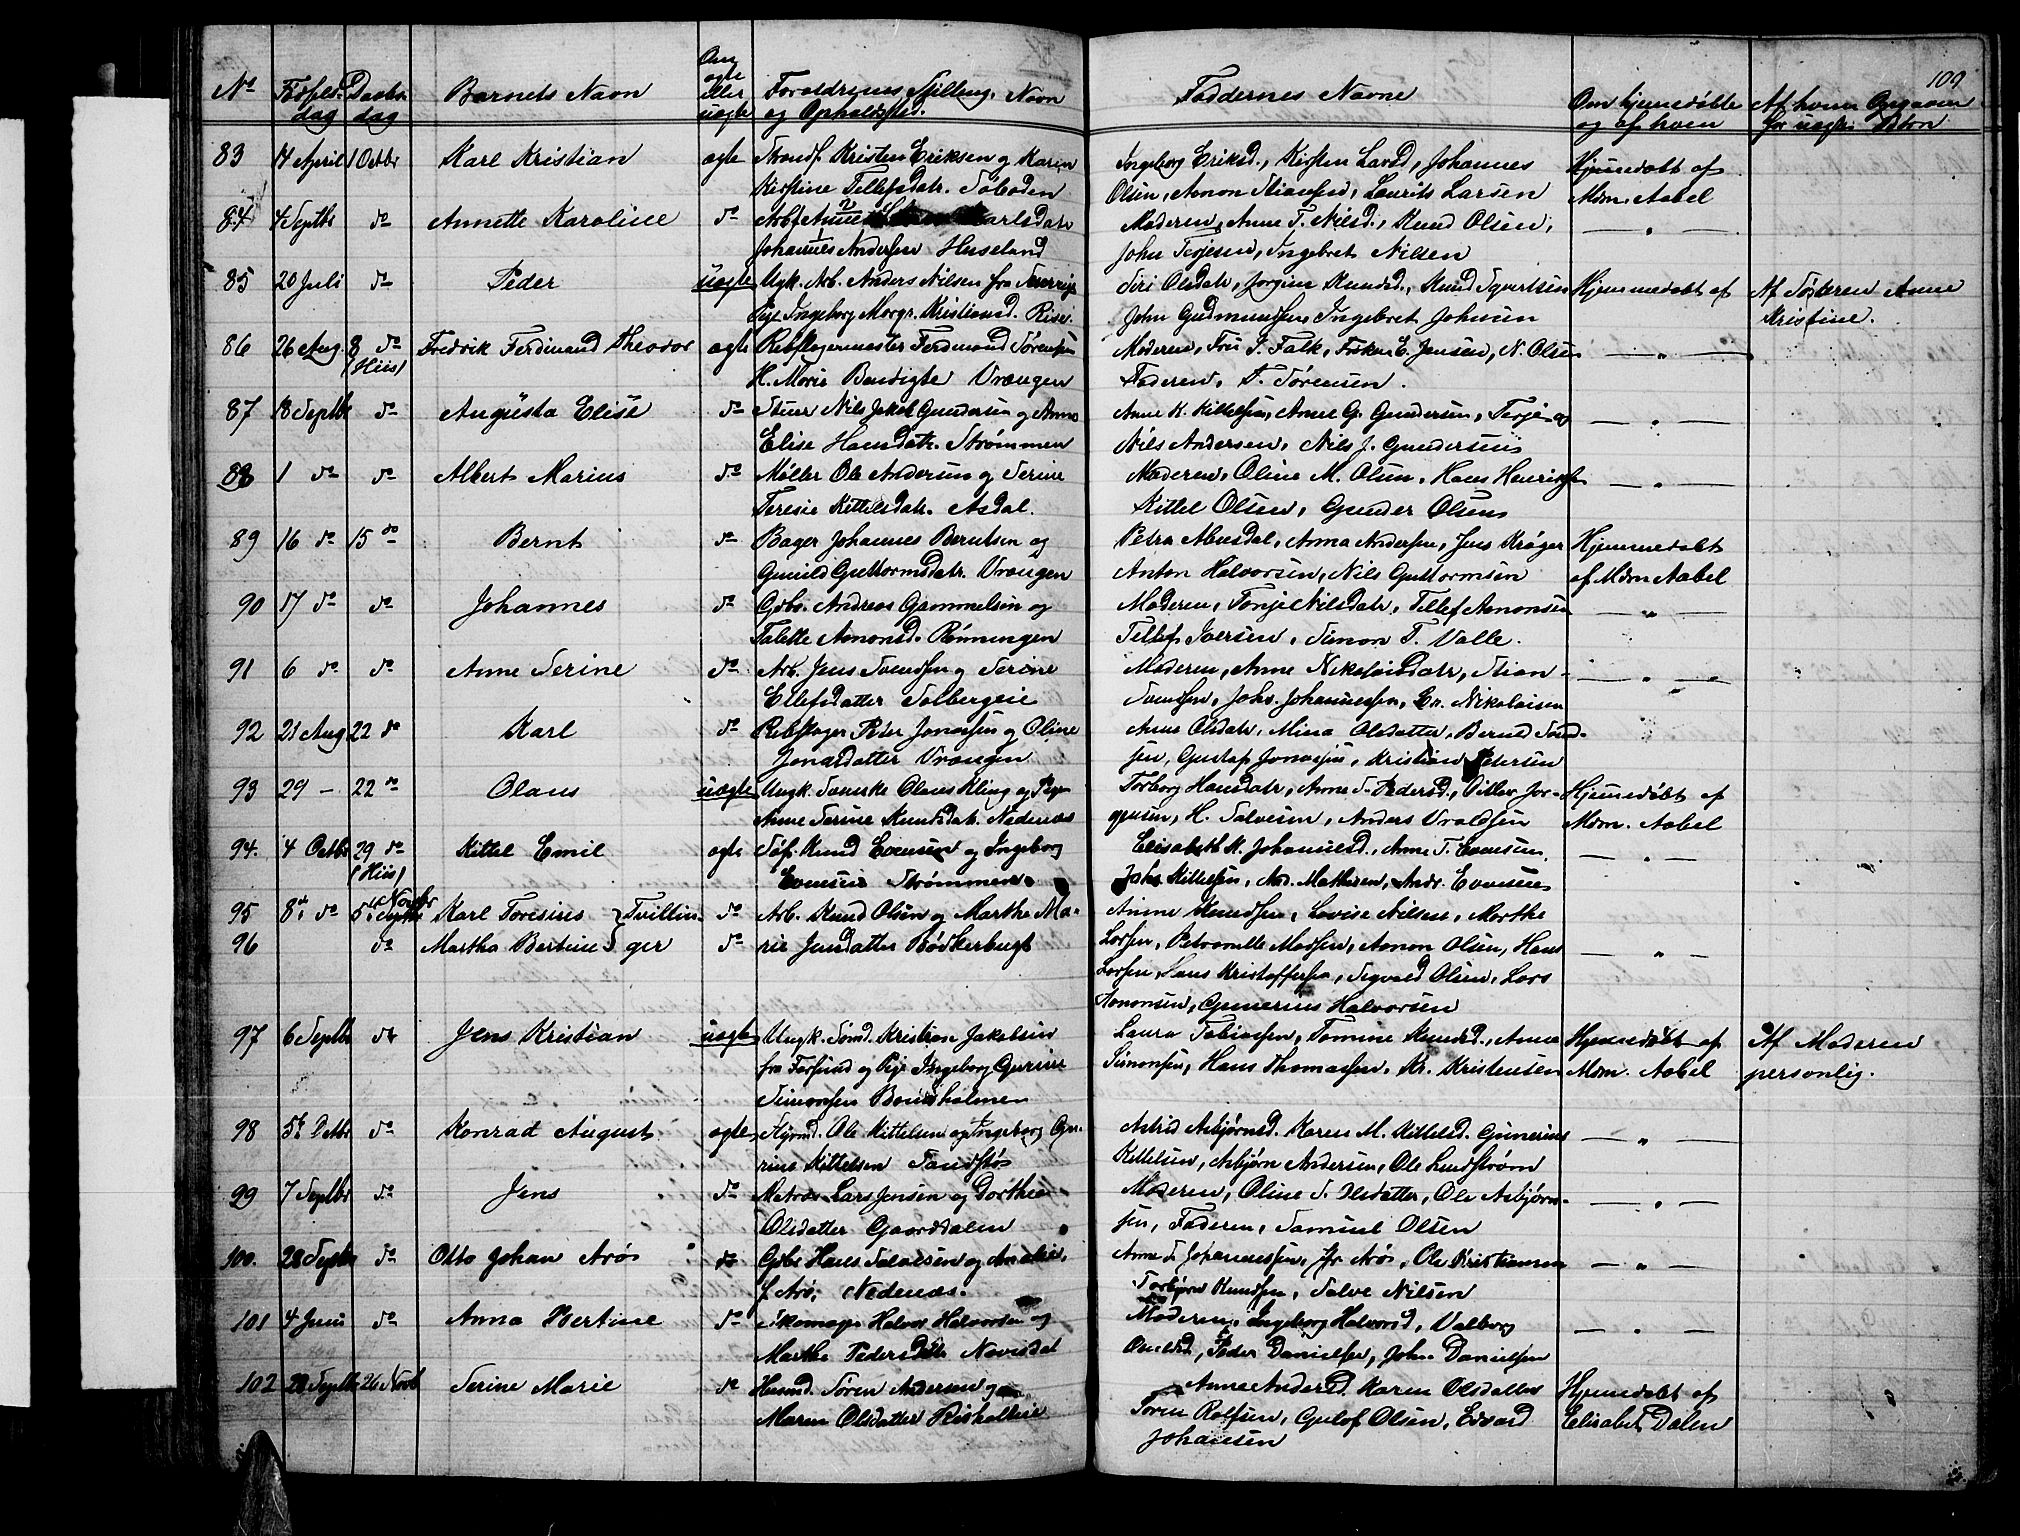 109
No Fødsels- Daabs- Barnets Navn Om Forældrenes Stilling, Navn Faddernes Navne Om hjemmedøbt Af hvem Opgaven
dag dag ægte eller uægte og Opholdsted. og af hvem for uægte Børn
83 14 April 1 Octbr Karl Kristian ægte Kristen Eriksen og Karen Ingeborg Eriksd., Kirsten Larsd, Johannes Hjemmedøbt af
Kirstine Tellefsdatr. Olsen, Aanon Stiansen, Laurits Larsen Mdm. Aabel
84 4 Septbr do Annette Karoline do Karlsdatr Moderen, Anne T. Nilsd., Knud Olsen, — " —
Johannes Andersen Huseland John Terjesen, Ingebret Nilsen
85 20 Juli do Peder uægte Ungk. Arb. Anders Nilsen fra Sverrig Siri Olsdatr, Jorgine Knudsd., Knud Syvertsen Hjemmedøbt af Af Søsteren Anne
Pige Ingeborg Margr. Kristiansd. Rise John Gudmundsen, Ingebret Johnsen Kristine.
86 26 Aug. 8 do Fredrik Ferdinand Theodor ægte Rebslagermester Ferdinand Sørensen Moderen, Fru J. Falk, Frøken E. Jensen, N. Olsen — " —
(Hiis) H. Marie Bendigte Vrængen Faderen, F. Sørensen.
87 18 Septbr do Augusta Elise do Stuer Nils Jakob Gundersen og Anna Anne K. Kittelsen, Anne G. Gundersen, Terje og — " —
Elise Hansdatr. Strømmen Nils Andersen, Nils J. Gundersen
88 1 do do Albert Marius do Møller Ole Andersen og Serine Moderen, Oline M. Olsen, Hans Henriksen — " —
Teresie Kittelsdatr. Asdal. Kittel Olsen, Gunder Olsen
89 16 do 15 do Bernt do Bager Johannes Berntsen og Petra Abusdal, Anna Andersen, Jens Krøger Hjemmedøbt
Gunild Guttormsdatr. Vrængen Anton Halvorsen, Nils Guttormsen af Mdm Aabel
90 17 do do Johannes do Gdbr. Andreas Gammelsen og Moderen, Tonje Nilsdatr, Tellef Aanonsen — " —
Talette Aanonsd. Rønningen Tellef Iversen, Simon T. Valle.
91 6 do do Anne Serine do Arb. Jens Svendsen og Serine Moderen, Anne Nikolaisdatr, Stian — " —
Ellefsdatter Solbergeie Svendsen, Johs. Johannessen, Er. Nikolaisen
92 21 Aug 22 do Karl do Rebslager Peder Jonassen og Oline Anne Olsdatr, Mina Olsdatter, Bernt
Jonasdatter Vrængen sen, Gustaf Jonassen, Kristian Petersen
93 29 — 22 do Olaus uægte Ungk. Svenske Olaus Kling og Pige Torborg Hansdatr, Anne S. Pedersd., Ditlev Jør- Hjemmedøbt af
Anne Serine Knudsdatr. Nedenæs gensen, H. Salvesen, Anders Uvaldsen Mdm. Aabel
94. 4 Octbr 29 do Kittel Emil ægte Knud Evensen og Ingeborg Elisabeth K. Johannesd., Anne T. Evensen, — " —
(Hiis) Evensen Strømmen Johs Kittelsen, And. Mathisen, Andr. Evensen
95 8de do 5te Novbr Karl Toresius } Tvillin- do Arb. Knud Olsen og Marthe Ma- Anne Knudsen, Lovise Nilsen, Marthe
96 do Martha Bertine } ger do rie Jensdatter Bødkerbugt Larsen, Petronelle Madsen, Aanon Olsen, Hans — " —
Larsen, Hans Kristoffersen, Sigvald Olsen, Lars
Aanonsen, Gunerius Halvorsen
97 6 Septbr do Jens Kristian uægte Ungk. Sømd. Kristian Jakobsen Laura Tobiassen, Tomine Knudsd., Anna Hjemmedøbt af Af Moderen
fra Farsund og Pige Ingeborg Gurine Simonsen, Hans Thomassen, Kr. Kristensen Mdm. Aabel personlig.
Simonsen
98 5te Octbr do Konrad August ægte Ole Kittelsen og Ingeborg Gu- Astrid Asbjørnsd. Karen M. Kittelsd. Gunerius — " —
rine Kittelsen Kittelsen, Asbjørn Andersen, Ole Lundstrøm
99 7 Septbr do Jens do Matros Lars Jensen og Dorthea Moderen, Oline S. Olsdatter, Ole Asbjørn- — " —
Olsdatter Gaarddalen sen, Faderen, Samuel Olsen
100. 28 Septbr do Otto Johan Arøe do Gdbr Hans Salvesen og Amalie Anne S. Johannessen, Jfr Arøe, Ole Kristiansen — " —
Nedenæs. Torbjørn Knudsen, Salve Nilsen
101 4 Juni do Anna Bertine do Skomager Halvor Halvorsen og Moderen, Ingeborg Halvorsd, Valborg — " —
Marthe Pedersdatr Navisdal Peder Danielsen, John Danielsen
102 28 Septbr 26 Novb Serine Marie do Husmd. Søren Andersen og Anne Andersd. Karen Olsdatter Hjemmedøbt af
Maren Olsdatter Søren Rolfsen, Gulof Olsen, Edvard Elisabet Dalen
Johansen